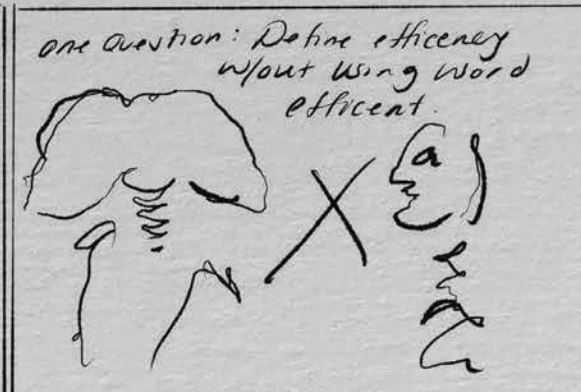 one Question: Define efficency
w/out using word
efficent.